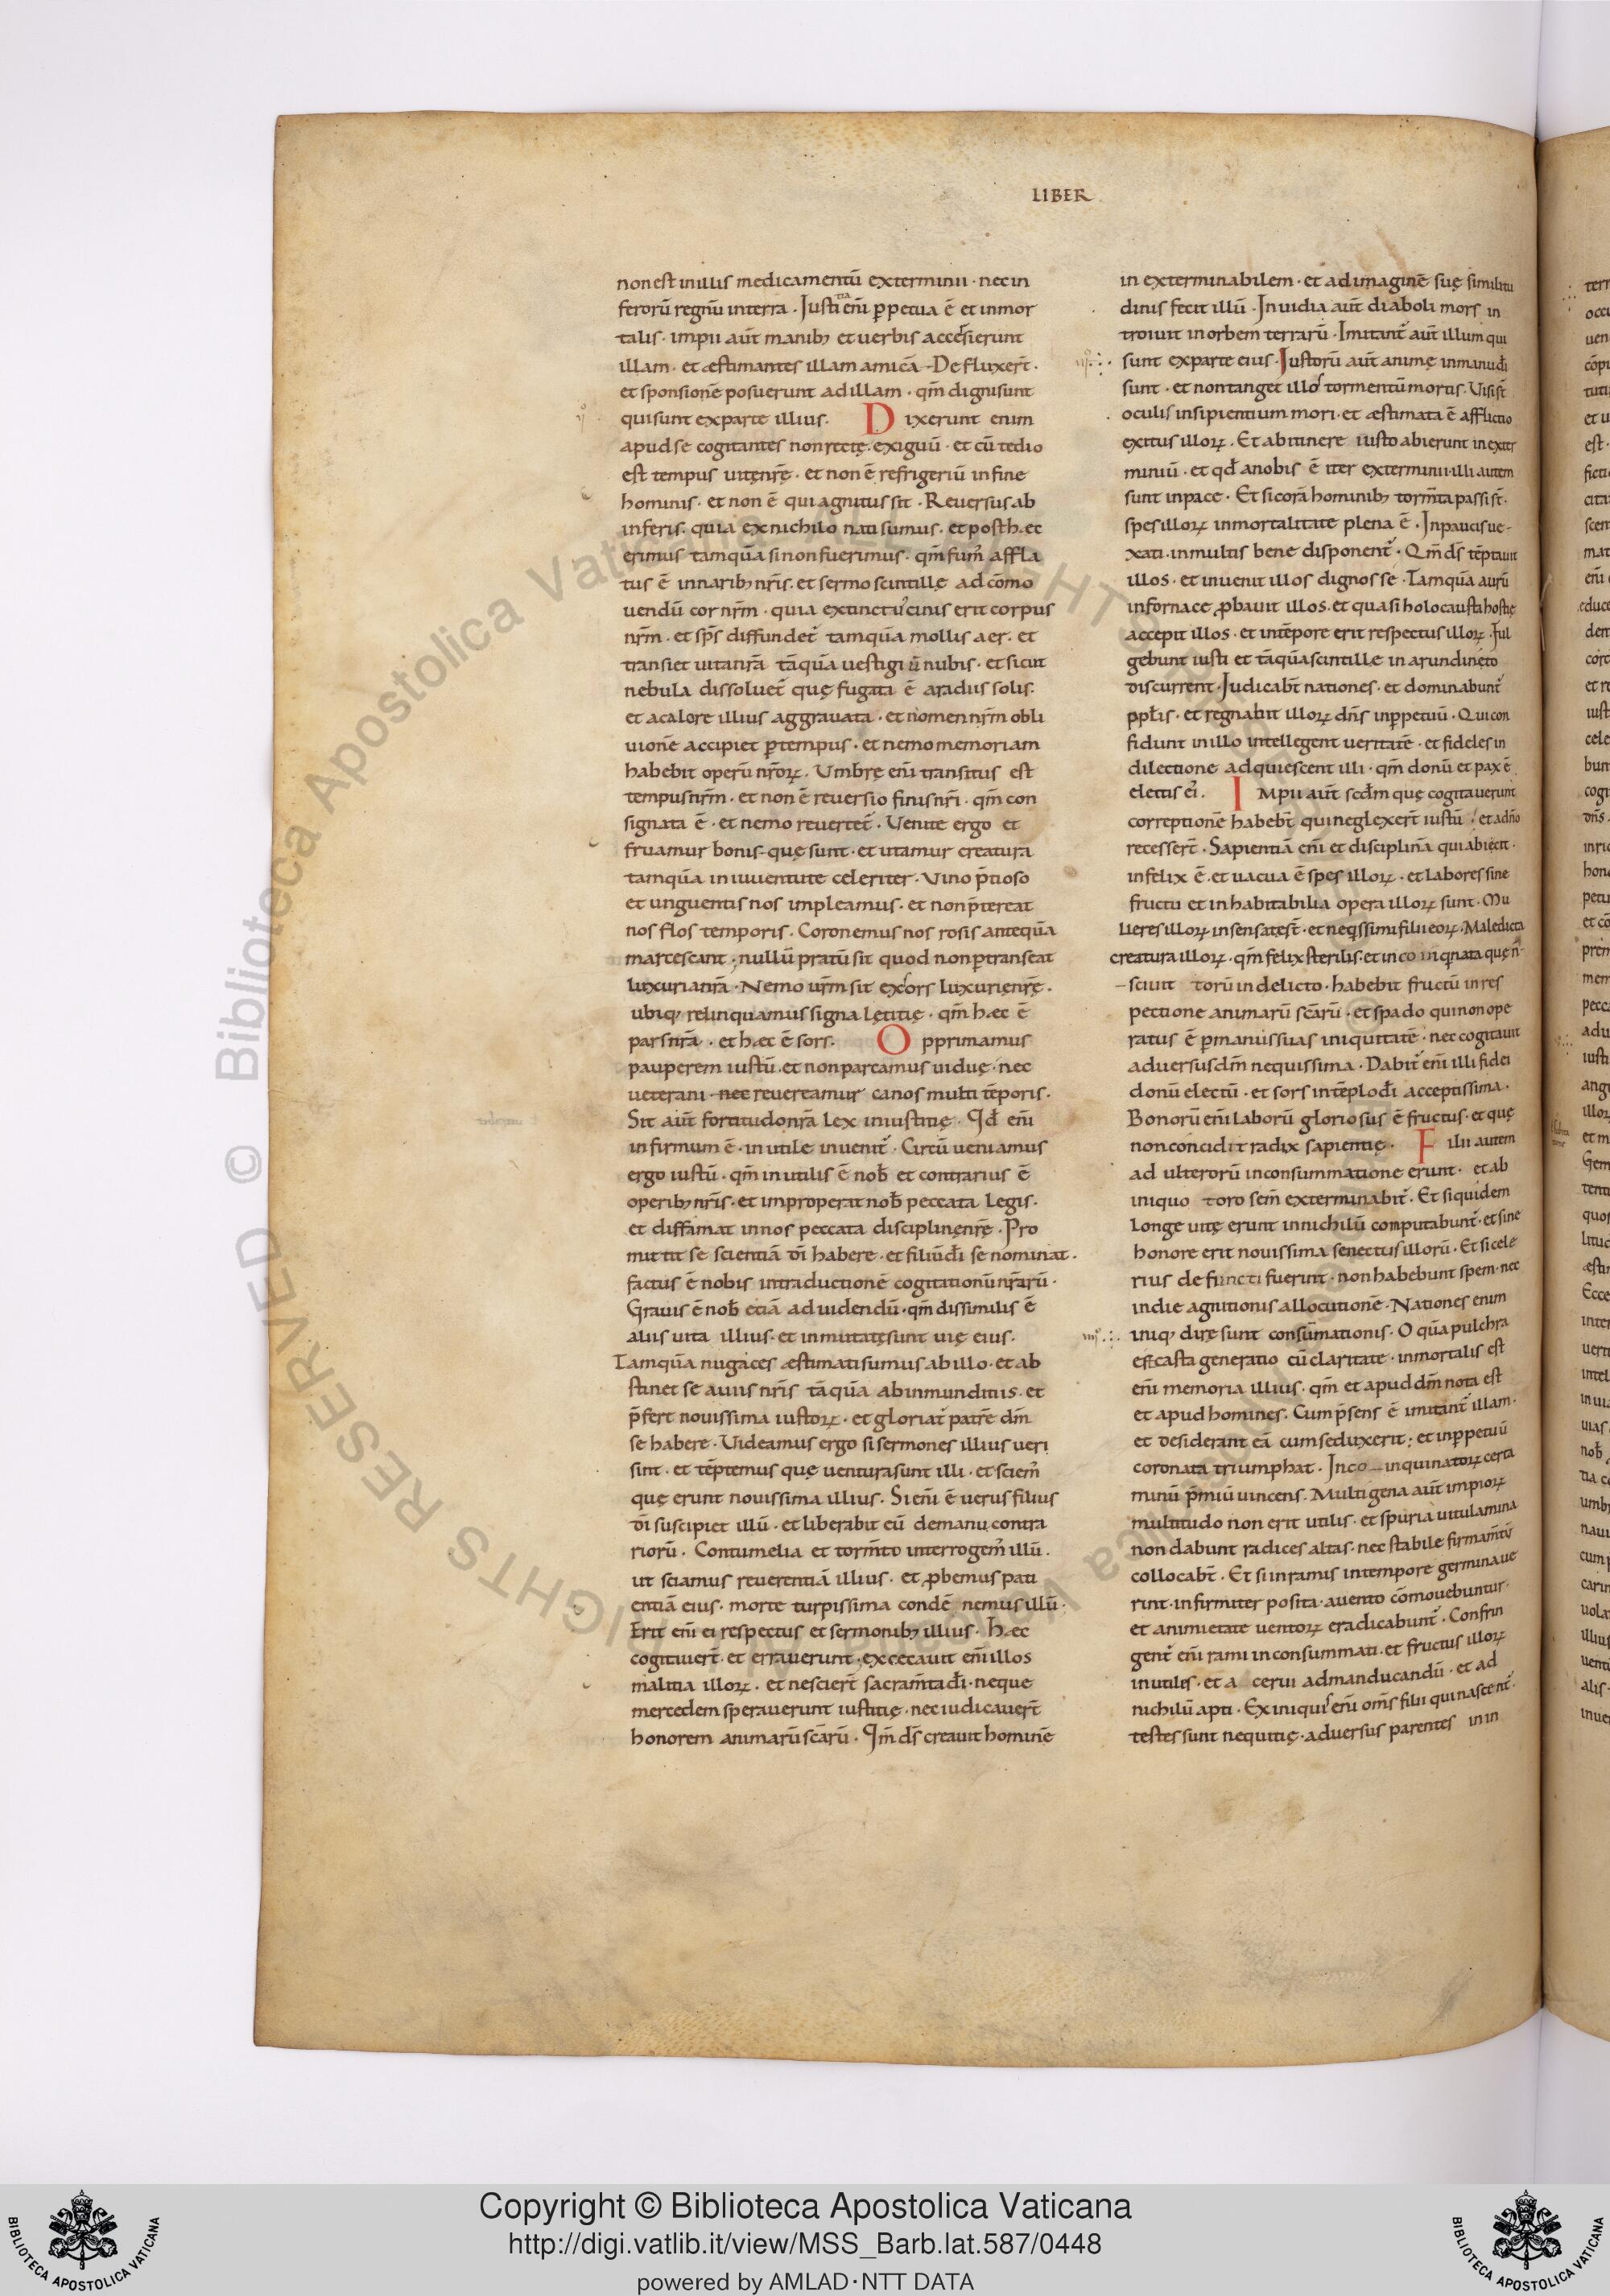 LIBER
non est in illis medicamentū exterminii · nec in
ferorū regnū in terra · Iusti tia enī ꝑpetua ē et inmor
talis · impii aūt manib; et uerbis accersierunt
illam · et æstimantes illam amicā · Defluxer̄t ·
et sponsionē posuerunt ad illam · qm̄ digni sunt
qui sunt ex parte illius · Dixerunt enim
apud se cogitantes non recte · exiguū · et cū tedio
est tempus uitę nr̄ę · et non ē refrigeriū in fine
hominis · et non ē qui agnitus sit · Reuersus ab
inferis · quia ex nichilo nati sumus · et post hæc
erimus tamquā si non fuerimus · qm̄ fum' affla
tus ē in narib; nr̄is · et sermo scintillę ad cōmo
uendū cor nr̄m · quia extinctus cinis erit corpus
nr̄m · et sp̄s diffundet' tamquā mollis aer · et
transiet uita nr̄a tāquā uestigiū nubis · et sicut
nebula dissoluet' quę fugata ē a radiis solis ·
et a calore illius aggrauata · et nomen nr̄m obli
uionē accipiet ꝑ tempus · et nemo memoriam
habebit operū nr̄oꝝ · Umbrę enī transitus est
tempus nr̄m · et non ē reuersio finis nr̄i · qm̄ con
signata ē · et nemo reuertet' · Uenite ergo et
fruamur bonis quę sunt · et utamur creatura
tamquā in iuuentute celeriter · Vino p̄tioso
et unguentis nos impleamus · et non p̄tereat
nos flos temporis · Coronemus nos rosis antequā
marcescant · nullū pratū sit quod non ꝑtranseat
luxuria nr̄a · Nemo ur̄m sit exsors luxurię nr̄ę ·
ubiq; relinquamus signa lętitię · qm̄ hæc ē
pars nr̄a · et hæc ē sors · Opprimamus
pauperem iustū · et non parcamus uiduę · nec
ueterani nec reuereamur canos multi tēporis ·
Sit aūt fortitudo nr̄a lex iniustitię · Qd̄ enī
infirmum ē · inutile inuenit' · Circū ueniamus
ergo iustū · qm̄ inutilis ē nob̄ et contrarius ē
operib; nr̄is · et improperat nob̄ peccata legis ·
et diffamat in nos peccata disciplinę nr̄ę · Pro
mittit se scientiā di habere · et filiū dī se nominat ·
factus ē nobis in traductionē cogitationū nr̄arū ·
Grauis ē nob̄ etiā ad uidendū · qm̄ dissimilis ē
aliis uita illius · et inmutatę sunt uię eius ·
Tamquā nugaces æstimati sumus ab illo · et ab
stinet se a uiis nr̄is tāquā ab inmunditiis · et
p̄fert nouissima iustoꝝ · et gloriat' patrē dm̄
se habere · Uideamus ergo si sermones illius ueri
sint · et tēptemus quę uentura sunt illi · et sciem'
quę erunt nouissima illius · Si enī ē uerus filius
di suscipiet illū · et liberabit eū de manu contra
riorū · Contumelia et torm̄to interrogem' illū ·
ut sciamus reuerentiā illius · et ꝓbemus pati
entiā eius · morte turpissima condē nemus illū ·
Erit enī ei respectus et sermonib; illius · Hæc
cogitauer̄t · et errauerunt · excecauit enī illos
malitia illoꝝ · et nescier̄t sacram̄ta dī · neque
mercedem sperauerunt iustitię · nec iudicauer̄t
honorem animarū scārū · Qm̄ ds̄ creauit hominē
in exterminabilem · et ad imaginē suę similitu
dinis fecit illū · Inuidia aūt diaboli mors in
troiuit in orbem terrarū · Imitant' aūt illum qui
sunt ex parte eius · Iustorū aūt animę in manu dī
sunt · et non tanget illos tormentū mortis · Uisi st̄
oculis insipientium mori · et æstimata ē afflictio
exitus illoꝝ · Et ab itinere iusto abierunt in exter
miniū · et qd̄ a nobis ē iter exterminii · illi autem
sunt in pace · Et si corā hominib; torm̄ta passi st̄ ·
spes illoꝝ inmortalitate plena ē · In paucis ue
xati · in multis bene disponent' · Qm̄ ds̄ tēptauit
illos · et inuenit illos dignos se · Tamquā aurū
in fornace ꝓbauit illos · et quasi holocausta hostię
accepit illos · et in tēpore erit respectus illoꝝ · Ful
gebunt iusti et tāquā scintille in arundineto
discurrent · Iudicab̄t nationes · et dominabunt'
ppl̄is · et regnabit illoꝝ dn̄s in ꝑpetuū · Qui con
fidunt in illo intellegent ueritatē · et fideles in
dilectione adquiescent illi · qm̄ donū et pax ē
electis ei' · Impii aūt scd̄m quę cogitauerunt
correptionē habeb̄t qui neglexer̄t iustū · et a dn̄o
recesser̄t · Sapientiā enī et disciplinā qui abiecit ·
infelix ē · et uacua ē spes illoꝝ · et labores sine
fructu et inhabitabilia opera illoꝝ sunt · Mu
lieres illoꝝ insensatę st̄ · et neqissimi filii eoꝝ · Maledicta
creatura illoꝝ · qm̄ felix sterilis · et inco inqnata quę n̄
sciuit torū in delicto · habebit fructū in res
pectione animarū scārū · et spado qui non ope
ratus ē ꝑ manus suas iniquitatē · nec cogitauit
aduersus dm̄ nequissima · Dabit' enī illi fidei
donū electū · et sors in tēplo dī acceptissima ·
Bonorū enī laborū gloriosus ē fructus · et quę
non concidit radix sapientię · Filii autem
adulterorū in consummatione erunt · et ab
iniquo toro sem̄ exterminabit' · Et siquidem
longe uitę erunt in nichilū computabunt' · et sine
honore erit nouissima senectus illorū · Et si cele
rius defuncti fuerint · non habebunt spem · nec
in die agnitionis allocutionē · Nationes enim
iniq; dirę sunt consūmationis · O quā pulchra
est casta generatio cū claritate · inmortalis est
enī memoria illius · qm̄ et apud dm̄ nota est
et apud homines · Cum p̄sens ē imitant' illam ·
et desiderant eā cum se duxerit · et in ꝑpetuū
coronata triumphat · Inco inquinatoꝝ certa
minū p̄miū uincens · Multigena aūt impioꝝ
multitudo non erit utilis · et spuria uitulamina
non dabunt radices altas · nec stabile firmam̄tū
collocab̄t · Et si in ramis in tempore germinaue
rint · infirmiter posita · a uento cōmouebuntur ·
et a nimietate uentoꝝ eradicabunt' · Confrin
gent' enī rami inconsummati · et fructus illoꝝ
inutiles · et a cerui ad manducandū · et ad
nichilū apti · Ex iniquis enī oms̄ filii qui nascent' ·
testes sunt nequitię · aduersus parentes in in
© Biblioteca Apostolica Vaticana ALL RIGHTS RESERVED
Copyright © Biblioteca Apostolica Vaticana
http://digi.vatlib.it/view/MSS_Barb.lat.587/0448
powered by AMLAD·NTT DATA
BIBLIOTECA APOSTOLICA VATICANA
BIBLIOTECA APOSTOLICA VATICANA